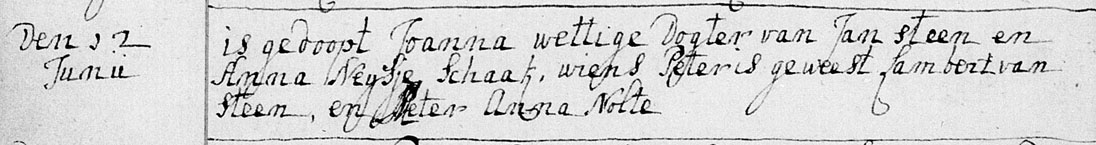 Den 12
Junii
is gedoopt Joanna wettige Dogter van Jan steen en
Anna Neysje Schaak, wiens Peter is geweest Lambert van
steen, en Peter Anna Nolte